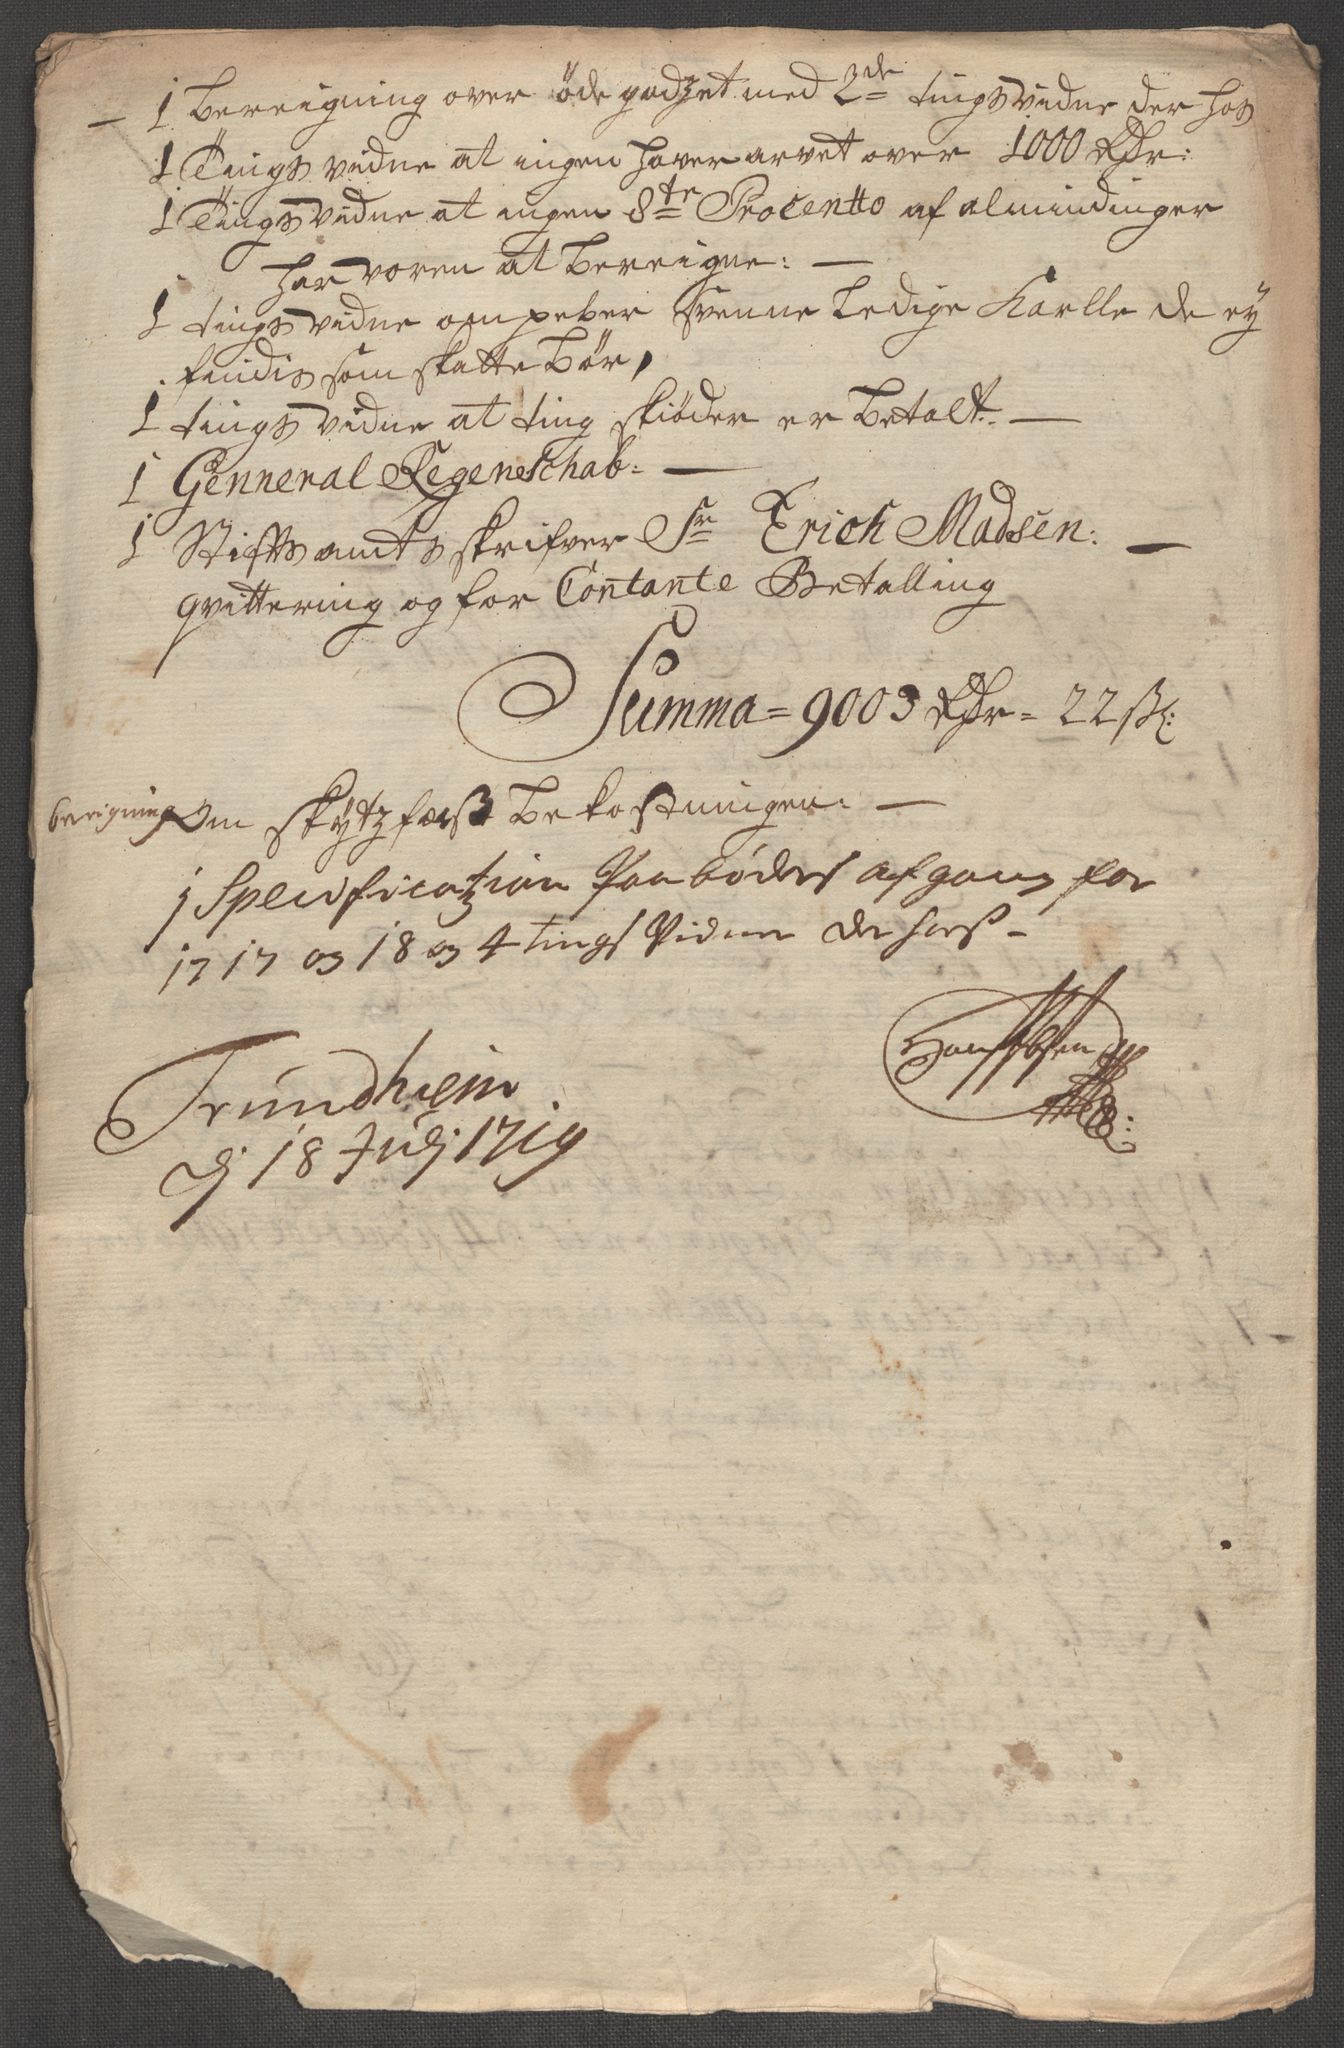 — 1 bereigning over öde godzet med 2de tings vidne der hos
1 Tings vidne at ingen haver arvet over 1000 Rdr:
1 Tings vidne at ingen 8te Procentto af almindinger
har voren at bereigne: —
1 tings vidne om peber svenne ledige Karlle de ey
findis som skatte bör,
1 tings vidne at ting skiöder er betalt. —
1 Genneral Regenschab: —
1 Stiffts amts skrifver Sr Erich Madsen: —
qvittering og for Contante Betalling
Summa = 9003 Rdr = 22 sk:
beregning Om skytzferst bekostningen: —
1 Specification Paa böders afgang for
1717 og 18 og 4 tings Vidner der hos -
Trundhiem
dj 18 Julj 1719